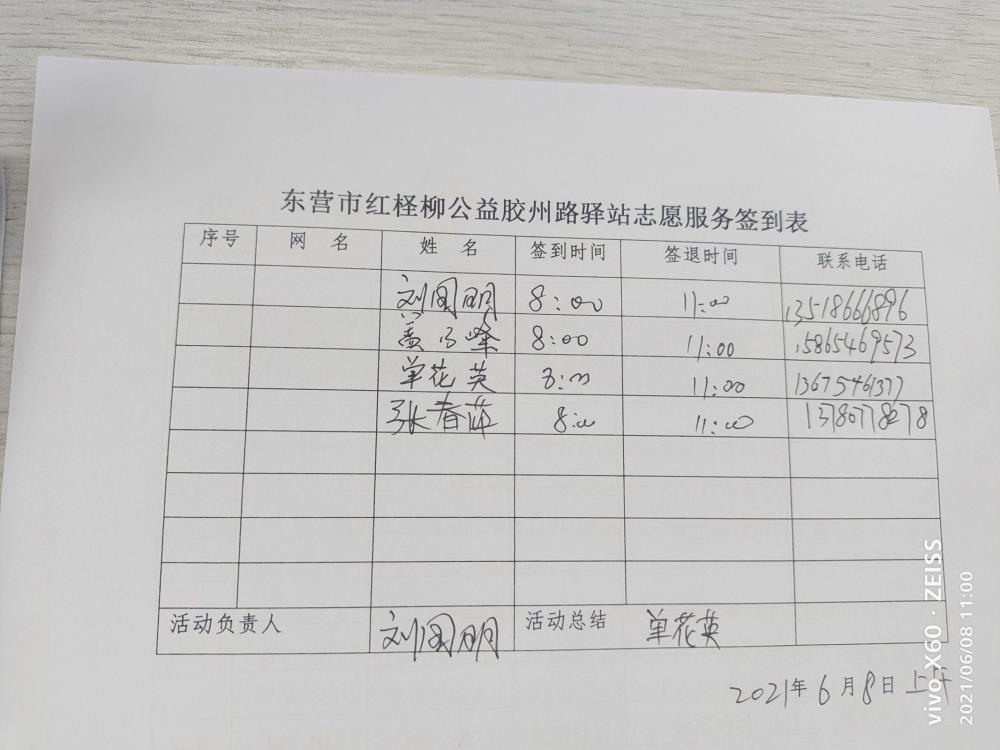 东营市红柽柳公益胶州路驿站志愿服务签到表
序号 网 名 姓 名 签到时间 签退时间 联系电话
刘国明 8:00 11:00 13518666896
8:00 11:00 15865469573
单花英 8:00 11:00 13675461377
张春萍 8:00 11:00 13780778278
活动负责人 刘国明 活动总结 单花英
2021年6月8日上午
vivo X60 · ZEISS
2021/06/08 11:00